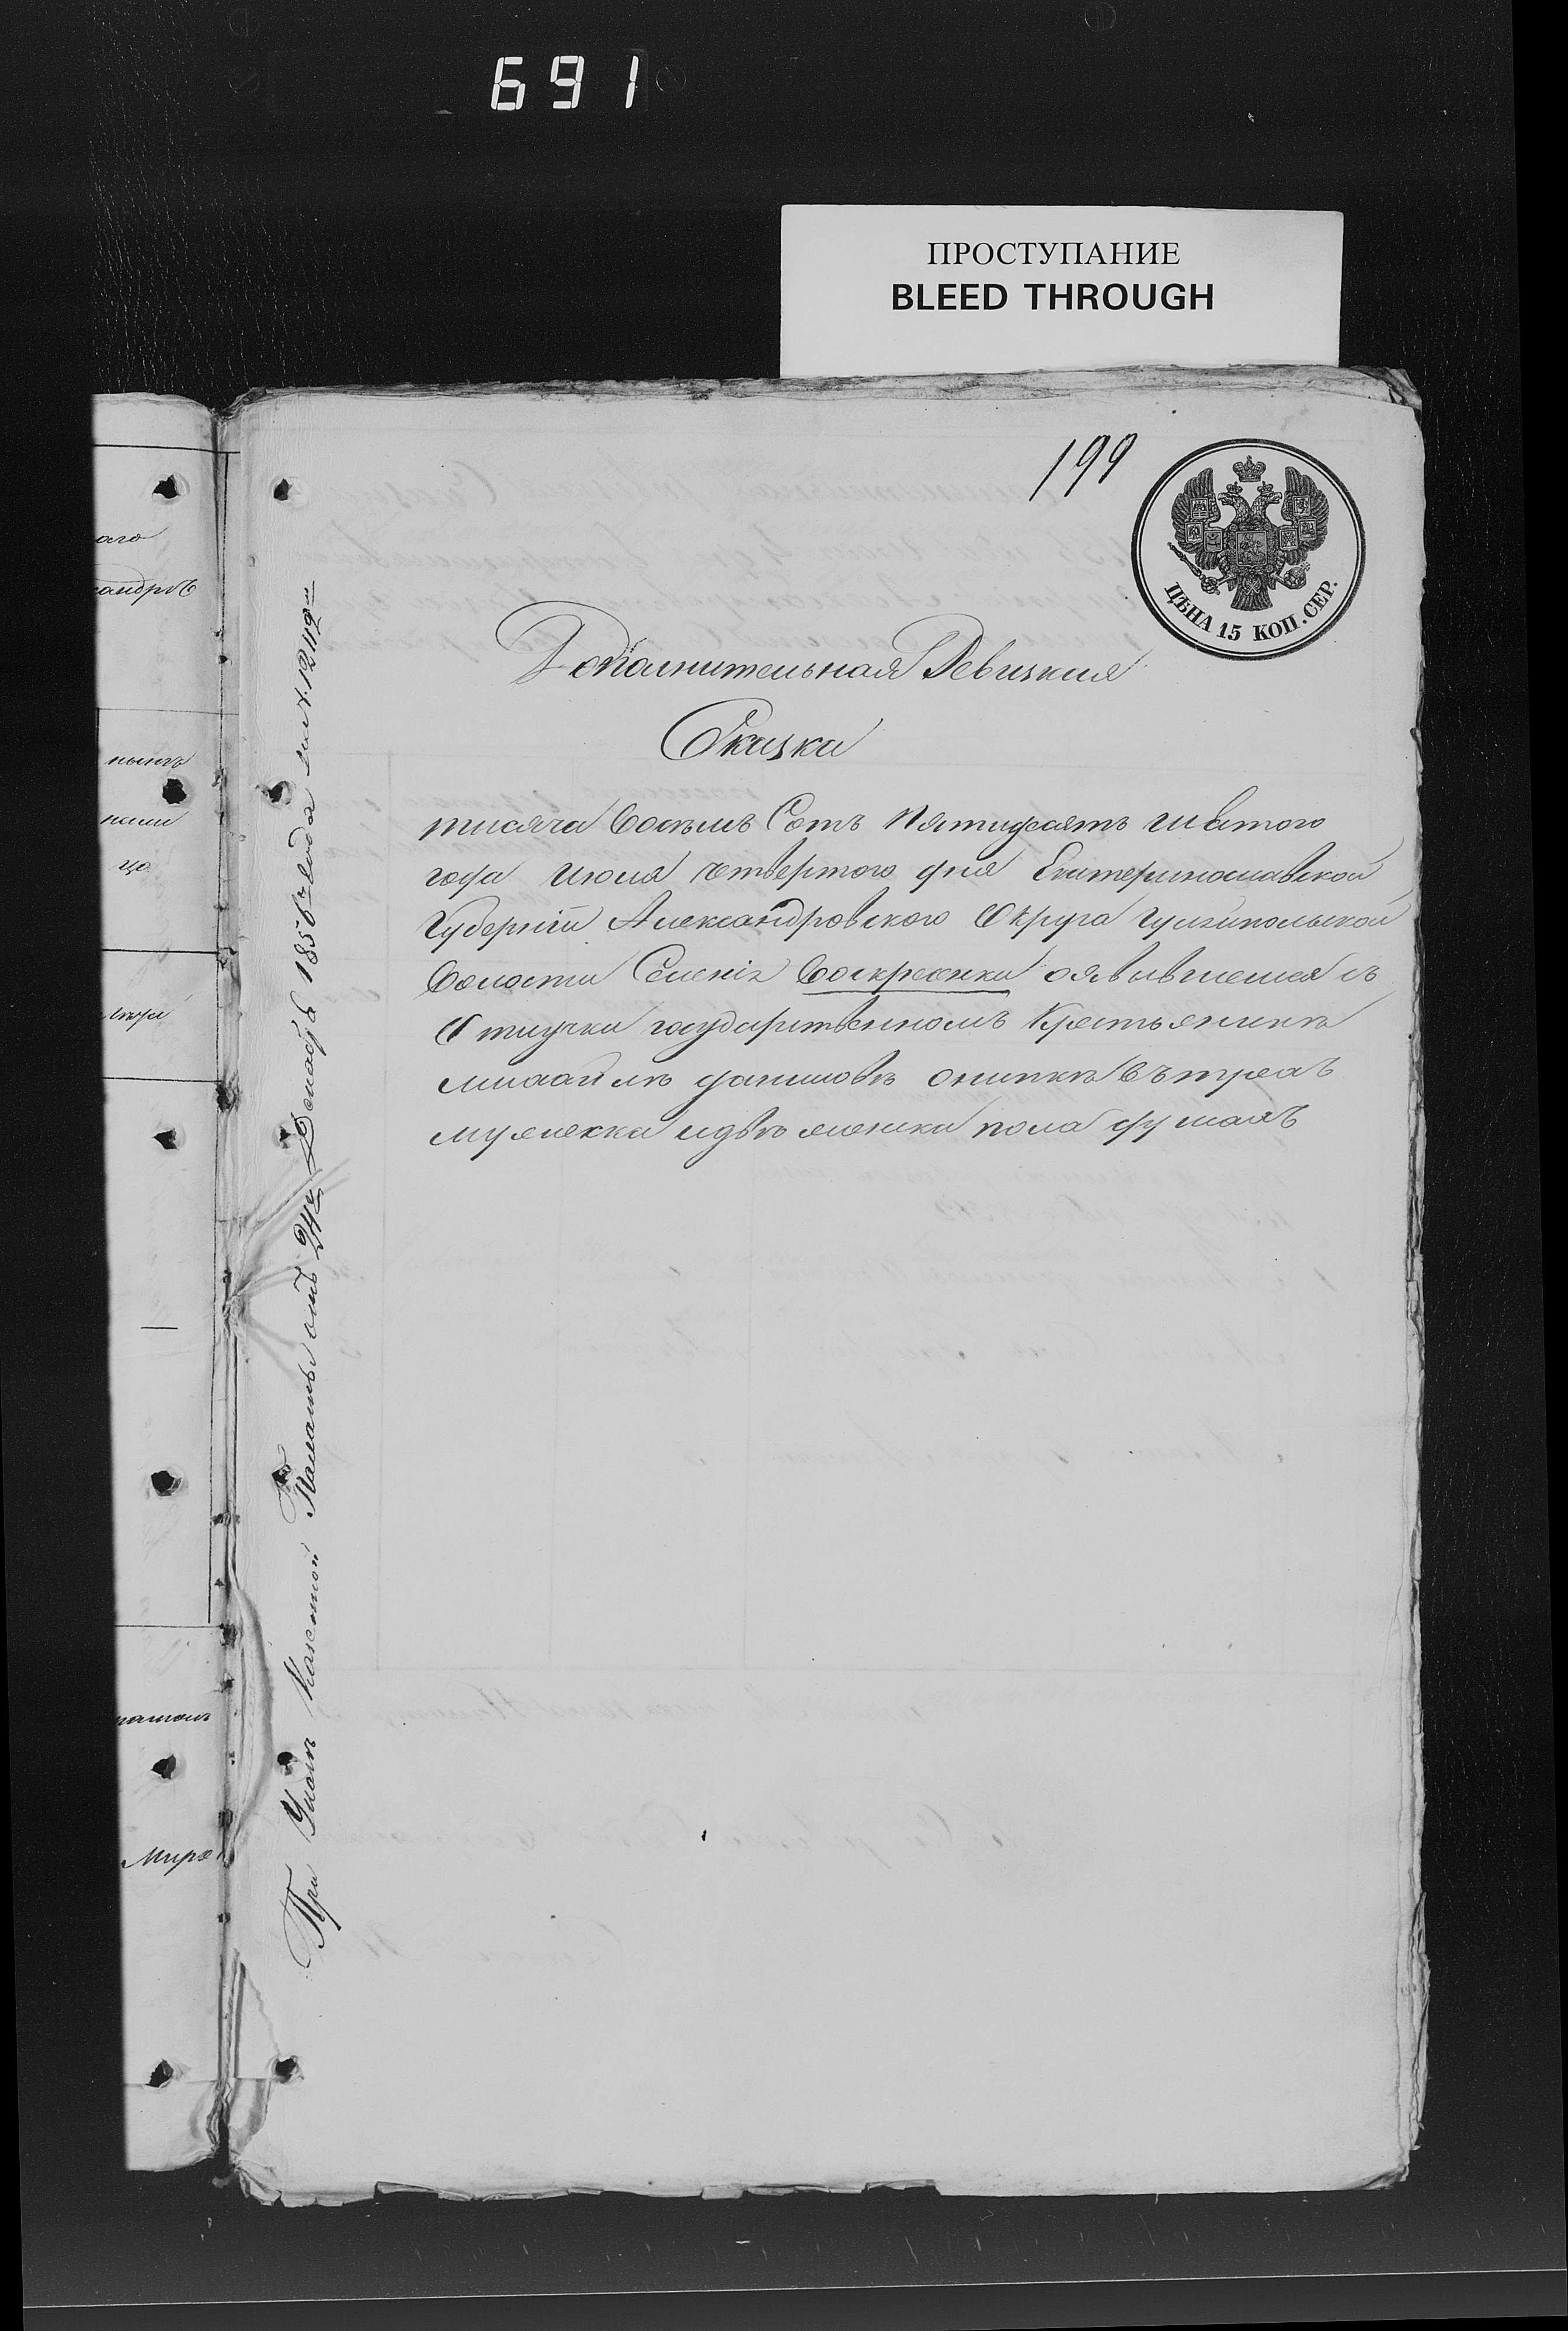 691
ПРОСТУПАНИЕ
BLEED THROUGH
199
ЦѢНА 15 КОП. СЕР.
Дополнительная Ревизкия
Сказка
тисяча Восемъ Сотъ Пятидесятъ шестого
года июля четвертого дня Екатеринославской
Губерніи Александровского Округа Гуляйпольской
Волости Селенія Воскресенки оявившемся съ
Отлучки государственномъ Крестьянинѣ
михайлѣ даниловѣ онипкѣ Въ трехъ
мужеска идвѣ женска пола душахъ
При Указѣ Казенной Палаты отъ 24го Декабря 1856го Года за № 12119м
аго
андръ
нынѣ
нами
цо
Мира